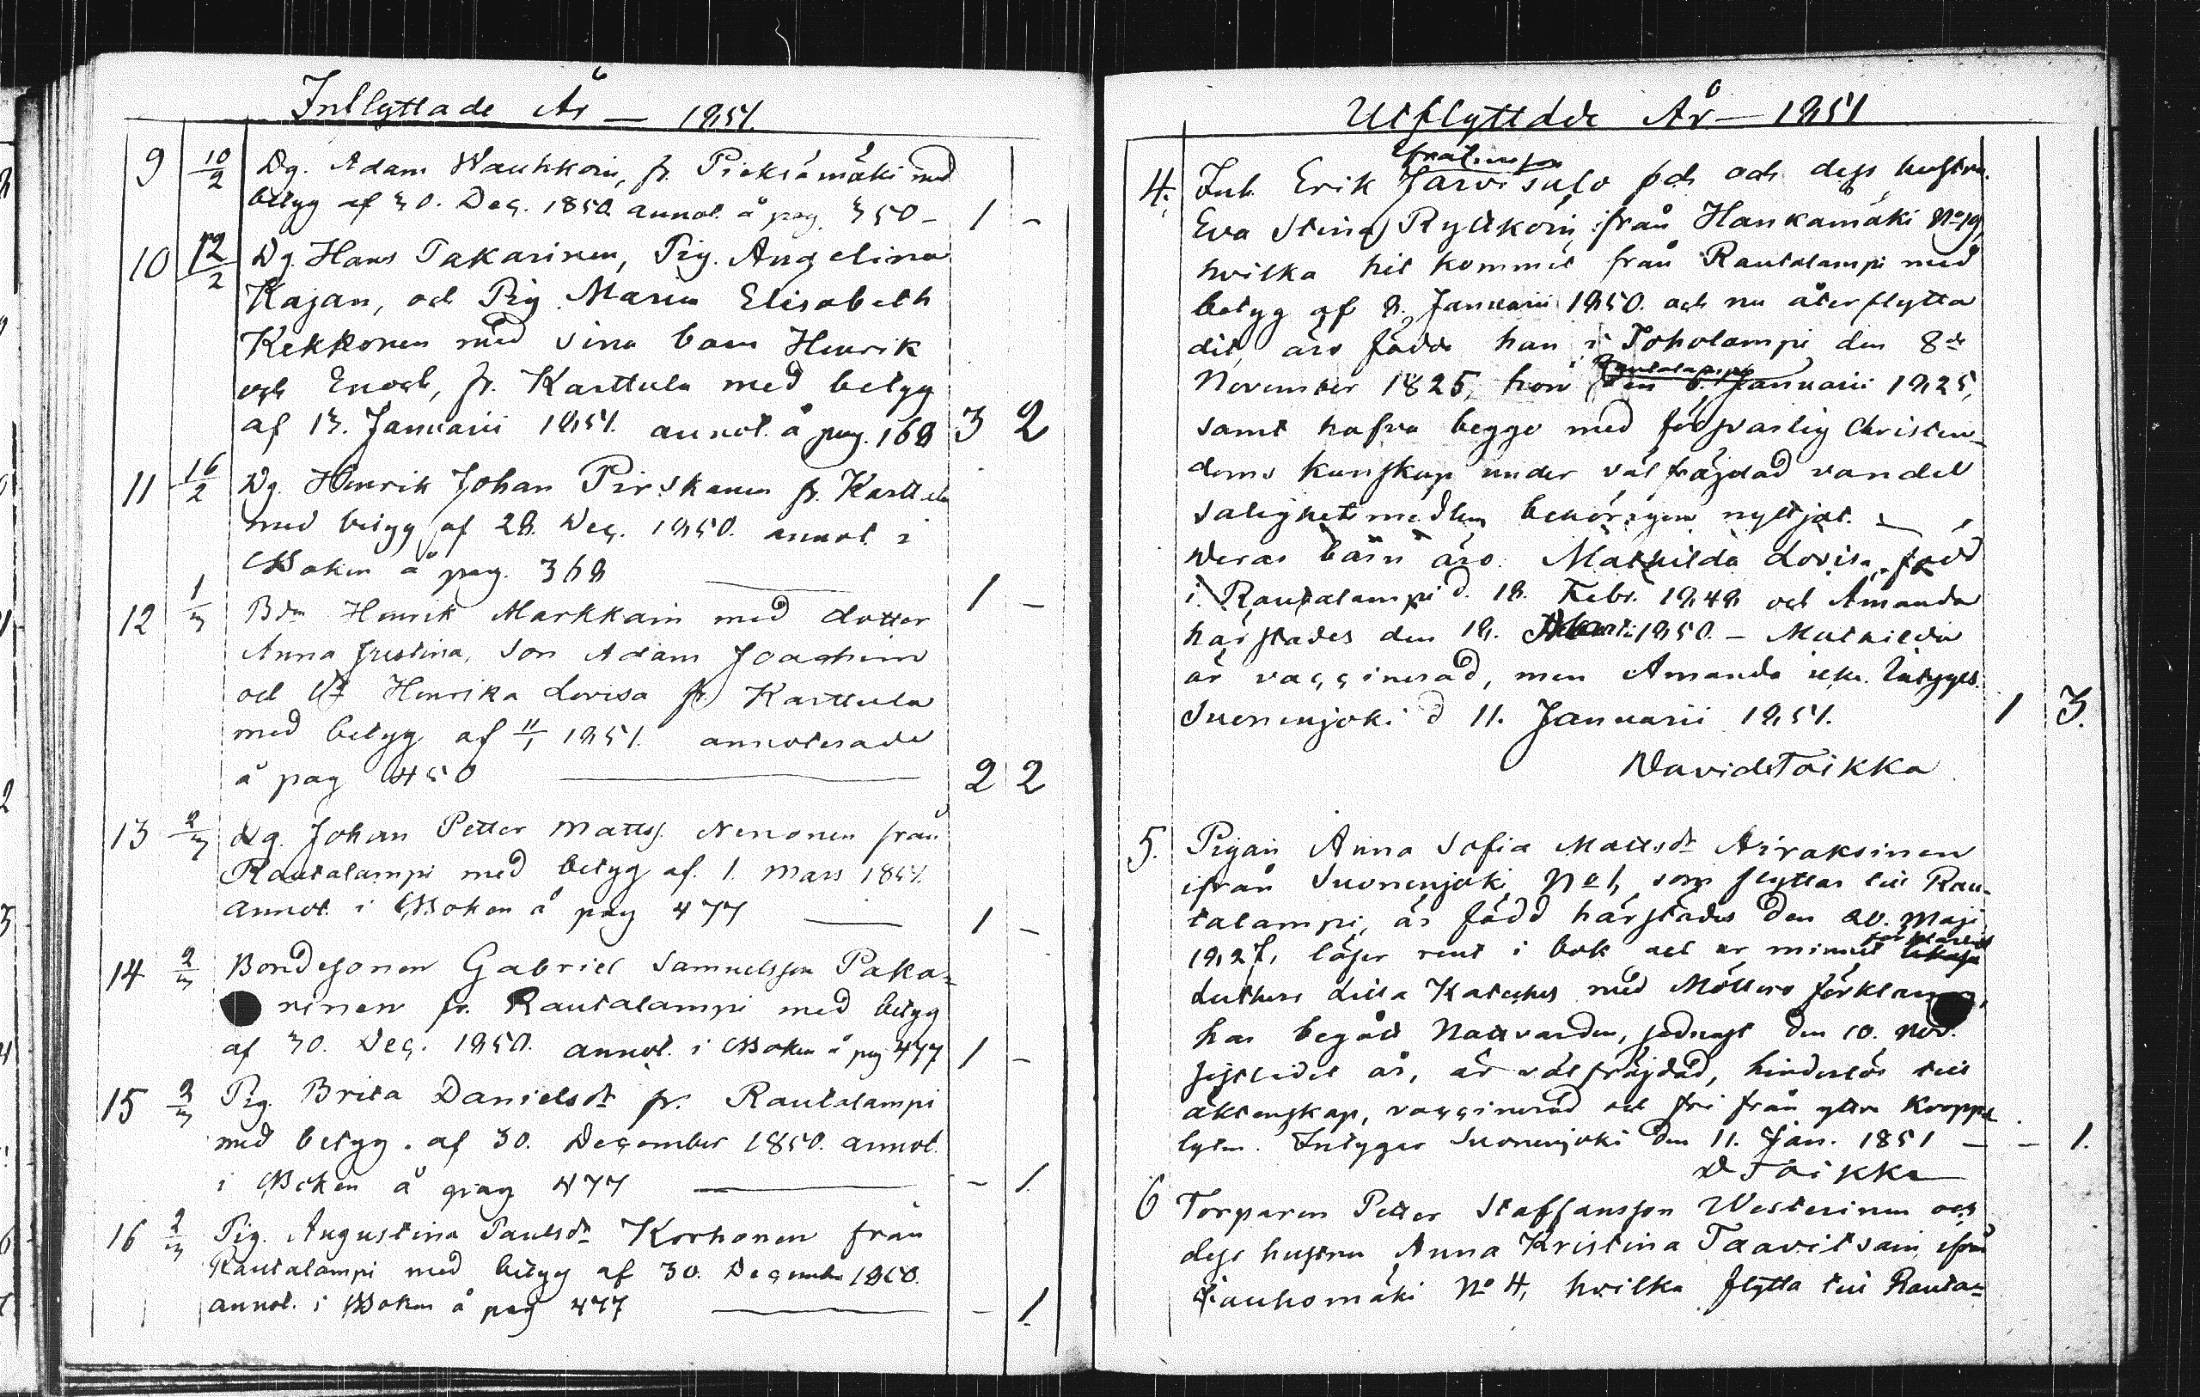 Inflyttade År — 1851.
9 10/2 Dg. Adam Wauhkoin, fr. Pieksämäki med
betyg af 30. Dec. 1850 annot. å pag. 350 – 1 –
10 12/2 Dg. Hans Takarinen, Pig. Angelina
Kajan, och Pig. Maria Elisabeth
Kekkonen med sina barn Henrik
och Enoch, fr. Karttula med betyg
af 13. Januarii 1851. annot. å pag. 168 3 2
11 16/2 Dg. Henrik Johan Pirskanen fr. Karttula
med betyg af 28. Dec. 1850. annot. i
Boken å pag. 368 1 –
12 1/3 Bdn Henrik Markkain med dotter
Anna Justina, Son Adam Joachim
och Henrika Lovisa fr. Karttula
med betyg af 11/1 1851. annoterade
å pag 450 2 2
13 2/3 Dg. Johan Petter Mattss. Nenonen från
Rautalampi med betyg af. 1. Mars 1851.
annot. i Boken å pag 477 1 –
14 2/3 Bondesonen Gabriel Samuelsson Paka-
rinen fr. Rautalampi med betyg
af 30. Dec. 1850. annot. i Boken å pag 477 1 –
15 2/3 Pig. Brita Danielsdr fr. Rautalampi
med betyg. af 30. December 1850. annot.
i Boken å pag 477 – 1.
16 2/3 Pig. Augustina Paulsdr Korhonen från
Rautalampi med betyg af 30. December 1850.
annot. i Boken å pag 477 – 1.
Utflyttade År — 1851
4. Inh. Erik Järvisalo och dess hustru
Eva Stina Rytköin, från Hankamäki No 19,
hvilka hit kommit från Rautalampi med
betyg af 8. Januarii 1850. och nu återflytta
dit, äro födde han i Toholampi den 8de
Rautalampi
November 1825, hon den 6. Januarii 1825,
samt hafva begge med försvarlig Christen-
doms kunskap under välfräjdad vandel
salighetsmedlen behörigen nyttjat.
Deras barn äro. Mathilda Lovisa, född
i. Rautalampi d. 18. Febr. 1848 och Amanda
härstädes den 18. 1850. – Mathilda
är vaccinerad, men Amanda icke. Intygas.
Suonenjoki d 11. Januarii 1851. 1 3.
David Toikka
5. Pigan Anna Sofia Mattsdr Airaksinen
ifrån Suonenjoki No 1, som flyttar till Rau-
talampi, är född härstädes den 20. Maji
1827, läser rent i bok och ur minnet
Lutheri Lilla Kateches med Möllers förklaring,
har begått Nattvarden, sednast den 10. Nov.
sistledet år, är välfräjdad, hinderlös till
äktenskap, vaccinerad och fri från yttre kropps
lyten. Intygar Suonenjoki den 11. Jan. 1851 – – 1.
D Toikka
6 Torparen Petter Staffansson Westerinen och
dess hustru Anna Kristina Taavitsain, ifrån
Jauhomäki No 4, hvilka flytta till Rauta-